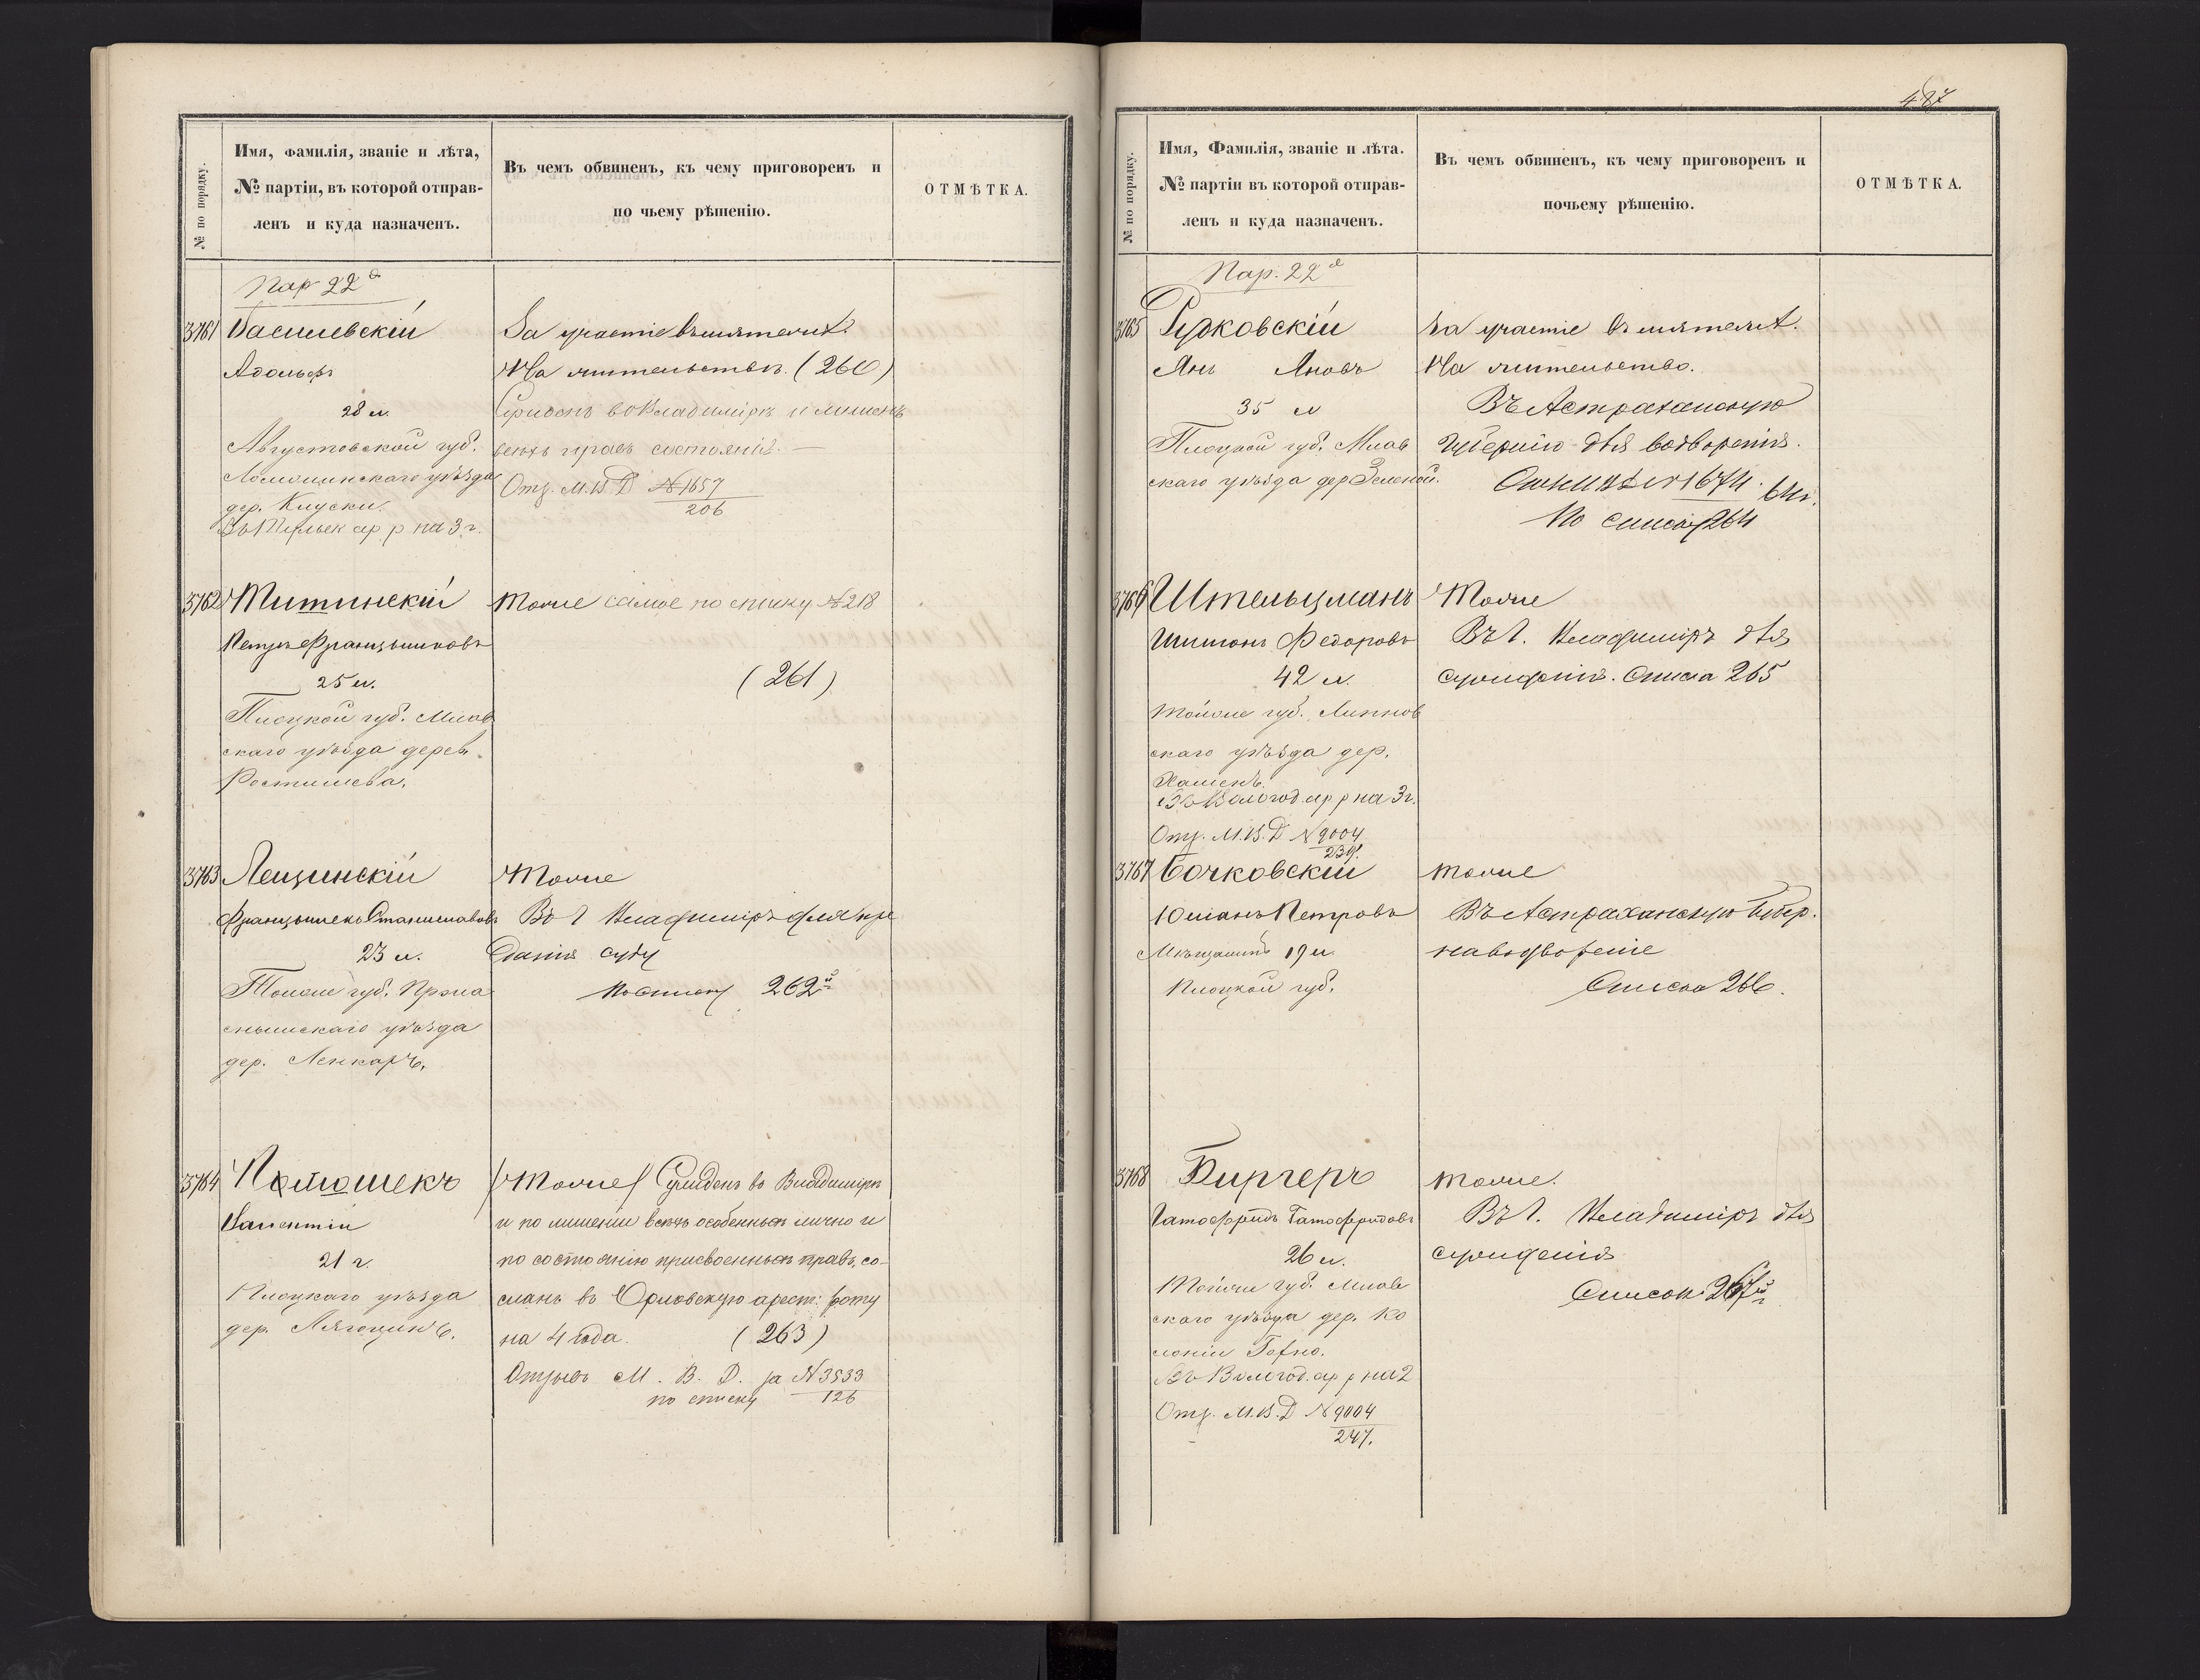 № по порядку.
Имя, Фамилія, званіе и лѣта,
№ партіи, въ которой отправ-
ленъ и куда назначенъ.
Въ чемъ обвиненъ, къ чему приговоренъ и
по чьему рѣшенію.
ОТМѢТКА.
Пар 22ª
3761 Василевскій
Адольфъ
28 л.
Августовской губ.
Ломжинскаго уѣзда
дер.
ар. р на 3 г.
За участіе въ мятежѣ.
На жительство. (260)
Сужденъ во Владимірѣ и лишенъ
всехъ правъ состоянія. —
Отз. М. В. Д № 1657
206
3762 Митинскій
Петръ Францышковъ
25 л.
Плоцкой губ. Млав
скаго уѣзда дерев.
Ростишева.
Тоже самое по списку № 218
(261)
3763 Лещинскій
Францышекъ Станиславовъ
23 л.
Тойже губ. Прона
снышскаго уѣзда
дер. Ленкарѣ.
Тоже
Въ Г Владиміръ для пре
данія суду
По списку 262й
3764 Потошекъ
Валентій
21 г.
Плоцкаго уѣзда
дер.
Тоже Сужденъ во Владимірѣ
и по лишеніи всехъ особенныхъ лично и
по состоянію присвоенныхъ правъ, со-
сланъ въ Орловскую арест: роту
на 4 года. (263)
Отзывъ М. В. Д. за № 3533
по списку 126
487
№ по порядку.
Имя, Фамилія, званіе и лѣта.
№ партіи въ которой отправ-
ленъ и куда назначенъ.
Въ чемъ обвиненъ, къ чему приговоренъ и
почьему рѣшенію.
ОТМѢТКА.
Пар. 22ª
3765 Рутковскій
Янъ Яновъ
35 л
Плоцкой губ. Млав
скаго уѣзда дер Зеленой.
За участіе въ мятежѣ.
На жительство.
Въ Астраханскую
Губернію для водворенія.
1674
По списку 264
3766 Штельцманъ
Шимонъ Федоровъ
42 л.
тойже губ. Липнов
скаго уѣзда дер.
Въ Вологод. ар р на 3 г.
Отз. М. В. Д № 9004
239.
Тоже
Въ Г. Владиміръ для
сужденія. Списка 265
3767 Бочковскій
Юліанъ Петровъ
Мѣщанинъ 19 л.
Плоцкой губ.
тоже
Въ Астраханскую Губер.
на водвореніе
Списка 266.
3768 Биргеръ
Готфридъ Готфридовъ
26 л.
Тойже губ. Млав
скаго уѣзда дер. Ко
лоніи Гофно.
Въ Вологод. ар р на 2
Отз. М. В. Д № 9004
247.
тоже.
Въ Г. Владиміръ для
сужденія
Списокъ 267й